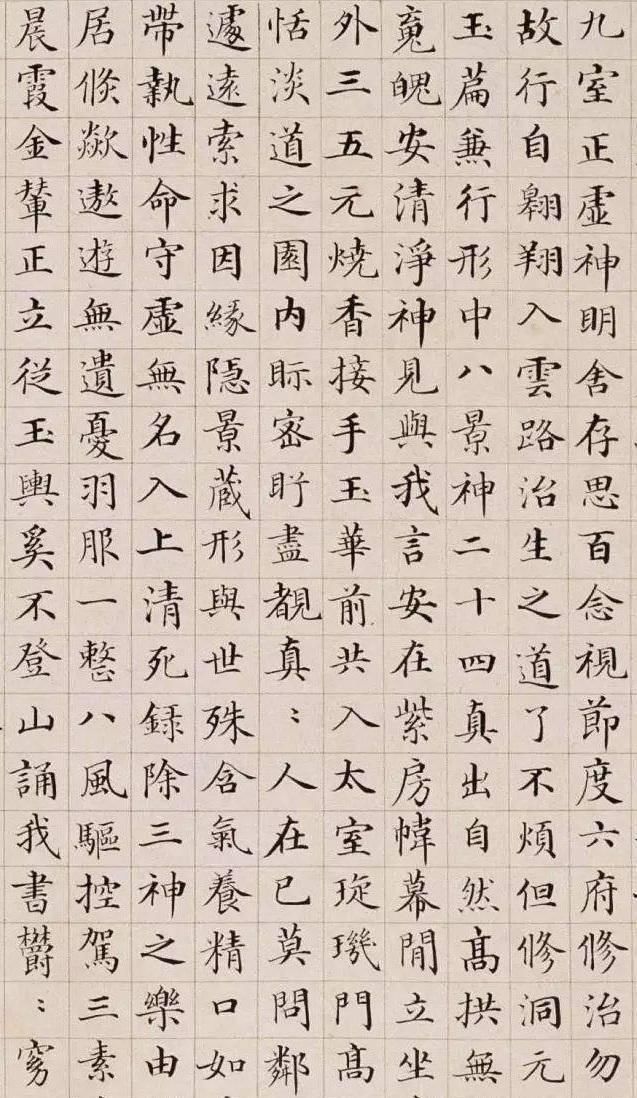 九室正虚神明舍存思百念視節度六府修治勿
故行自翱翔入雲路治生之道了不煩但修洞元
玉篇兼行形中八景神二十四真出自然高拱無
魂魄安清淨神見與我言安在紫房幃幕閒立坐
外三五元燒香接手玉華前共入太室琁璣門高
恬淡道之園内眎密盱盡覩真〻人在已莫問鄰
遽遠索求因緣隠景藏形與世殊含氣養精口如
帶執性命守虚無名入上清死録除三神之樂由
居倐歘遨遊無遺憂羽服一整八風驅控駕三素
晨霞金輦正立從玉輿奚不登山誦我書欝〻窈